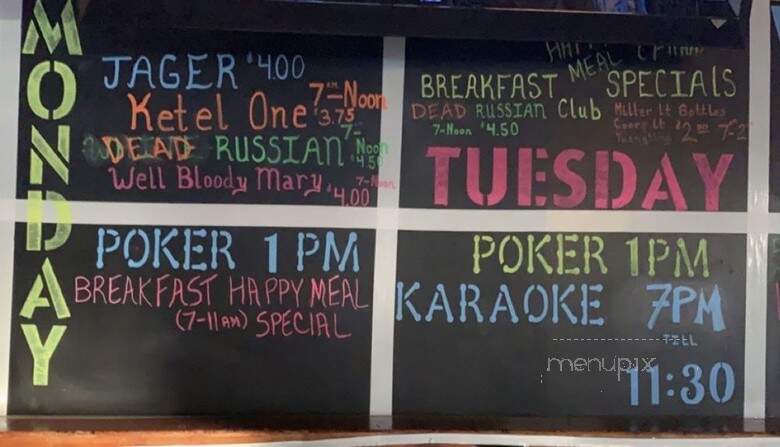 MONDAY
JAGER $4.00
Ketel One 7AM-Noon
$3.75
DEAD RUSSIAN 7-Noon
$4.50
Well Bloody Mary 7-Noon
$4.00
POKER 1 PM
BREAKFAST HAPPY MEAL
(7-11AM) SPECIAL
HAPPY
MEAL
BREAKFAST SPECIALS
DEAD RUSSIAN Club
7-Noon $4.50
Miller Lt Bottles
Coors Lt $2.00 7-2
TUESDAY
POKER 1PM
KARAOKE 7PM
TILL
11:30
menupix